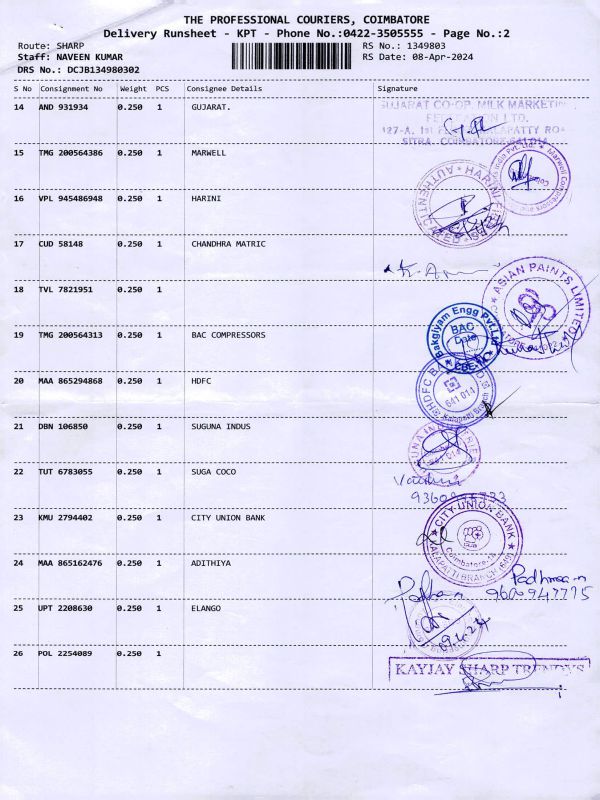 THE PROFESSIONAL COURIERS, COIMBATORE
Delivery Runsheet - KPT - Phone No.:0422-3505555 - Page No.:2
Route: SHARP RS No.: 1349803
Staff: NAVEEN KUMAR RS Date: 08-Apr-2024
DRS No.: DCJB134980302
S No Consignment No Weight PCS Consignee Details Signature
14 AND 931934 0.250 1 GUJARAT.
GUJARAT CO-OP. MILK MARKETING
127-A, 1st
SITRA, COIMBATORE-641 014
15 TMG 200564386 0.250 1 MARWELL
16 VPL 945486948 0.250 1 HARINI
17 CUD 58148 0.250 1 CHANDHRA MATRIC
18 TVL 7821951 0.250 1
ASIAN PAINTS LIMITED
19 TMG 200564313 0.250 1 BAC COMPRESSORS
Bakgiyam Engg Pvt.Ltd
BAC
Date
20 MAA 865294868 0.250 1 HDFC
HDFC
641 014
Kalapatti Branch
21 DBN 106850 0.250 1 SUGUNA INDUS
22 TUT 6783055 0.250 1 SUGA COCO
23 KMU 2794402 0.250 1 CITY UNION BANK
CITY UNION BANK
Coimbatore
KALAPATTI BRANCH
24 MAA 865162476 0.250 1 ADITHIYA
9600947775
25 UPT 2208630 0.250 1 ELANGO
09.4.24
26 POL 2254089 0.250 1
KAYJAY SHARP TRENDYS